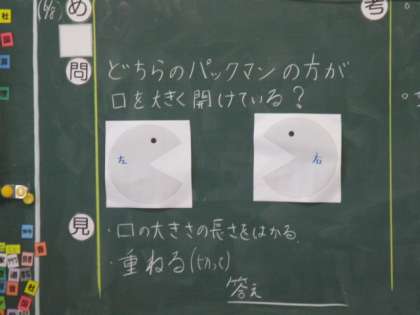 (6/8)
め
問
どちらのパックマンの方が
口を大きく開けている?
左
右
見
・口の大きさの長さをはかる
・重ねる(切って)
答え
考